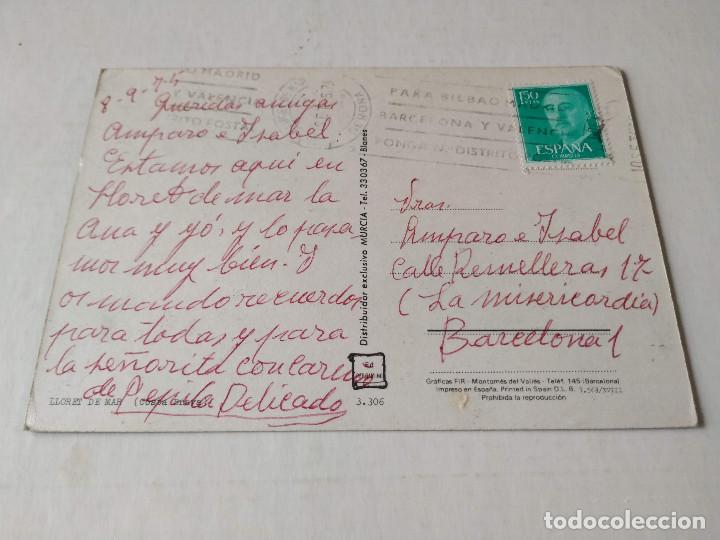 O MADRID
Y VALENCI
RITO POSTA
GERONA
PARA BILBAO
BARCELONA Y VALEN
PONGA Nº DISTRITO
1'50
PTAS
ESPAÑA
CORREOS
8-9-74
Queridas amigas
Amparo e Isabel.
Estamos aqui en
Lloret de mar la
Ana y yó, y lo pasa
mos muy bien. Y
os mando recuerdos
para todas y para
la señorita con cariño
de Pepita Delicado
LLORET DE MAR (Costa Brava)
3.306
Distribuidor exclusivo MURCIA - Tel. 330367 - Blanes
Sras.
Amparo e Isabel
Calle Remelleras 17
(La misericordia)
Barcelona 1
Gráficas FIR - Montornés del Vallés - Teléf. 145 (Barcelona)
Impreso en España. Printed in Spain D.L. B.
Prohibida la reproducción
todocoleccion
todocoleccion.net